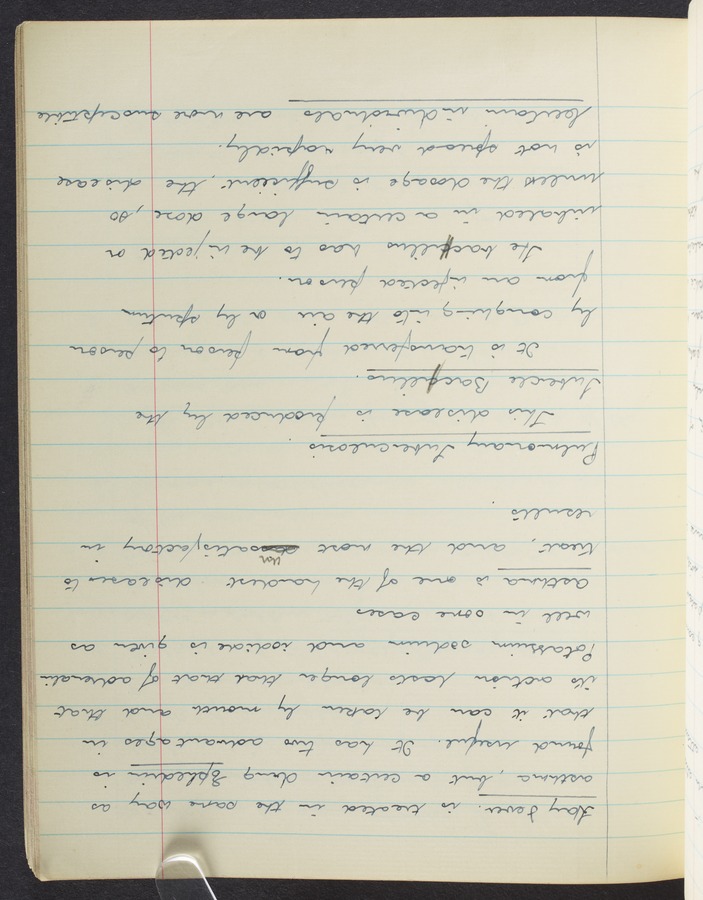 Hay Fever. is treated in the same way as
asthma, but a certain drug Ephedrin is
found useful. It has two advantages in
that it can be taken by mouth and that
its action lasts longer that that of adrenalin
Potassium sodium and iodide is given as
well in some cases
asthma is one of the hardest diseases to
treat, and the most unsatisfactory in
results.
Pulmonary Tuberculosis
This disease is produced by the
Tubercle Bacillus.
It is transferred from person to person
by coughing into the air or by sputum
from an infected person.
The bacillus has to be injected or
inhaled in a certain large dose, so
unless the dosage is sufficient, the disease
is not spread very rapidly.
Certain individuals are more susceptible